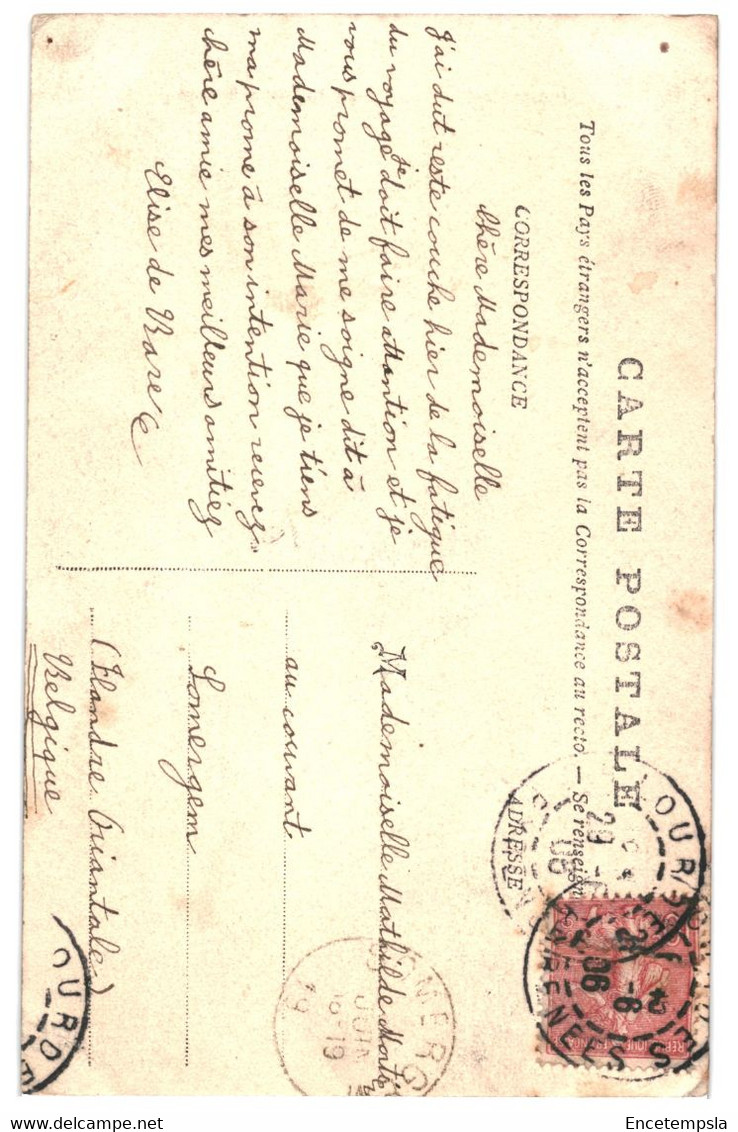 CARTE POSTALE
Tous les Pays étrangers n'acceptent pas la Correspondance au recto. — Se renseign
CORRESPONDANCE
ADRESSE
Chère Mademoiselle
J'ai dut reste couche hier de la fatigue
du voyage je doit faire attantion et je
vous promet de me soigne dit à
Mademoiselle Marie que je tiens
ma prome à son intention recevez
chère amie mes meilleurs amitiez
Elise de
Mademoiselle Mathilde
au couvant
Somergem
(Flandre Oriantale)
Belgique
OURDE
29
06
LOURDES
28 - 6
06
PYRENEES
REPUBLIQUE FRANÇAISE
OMERG
JUIN
18-19
OURDE
Encetempsla